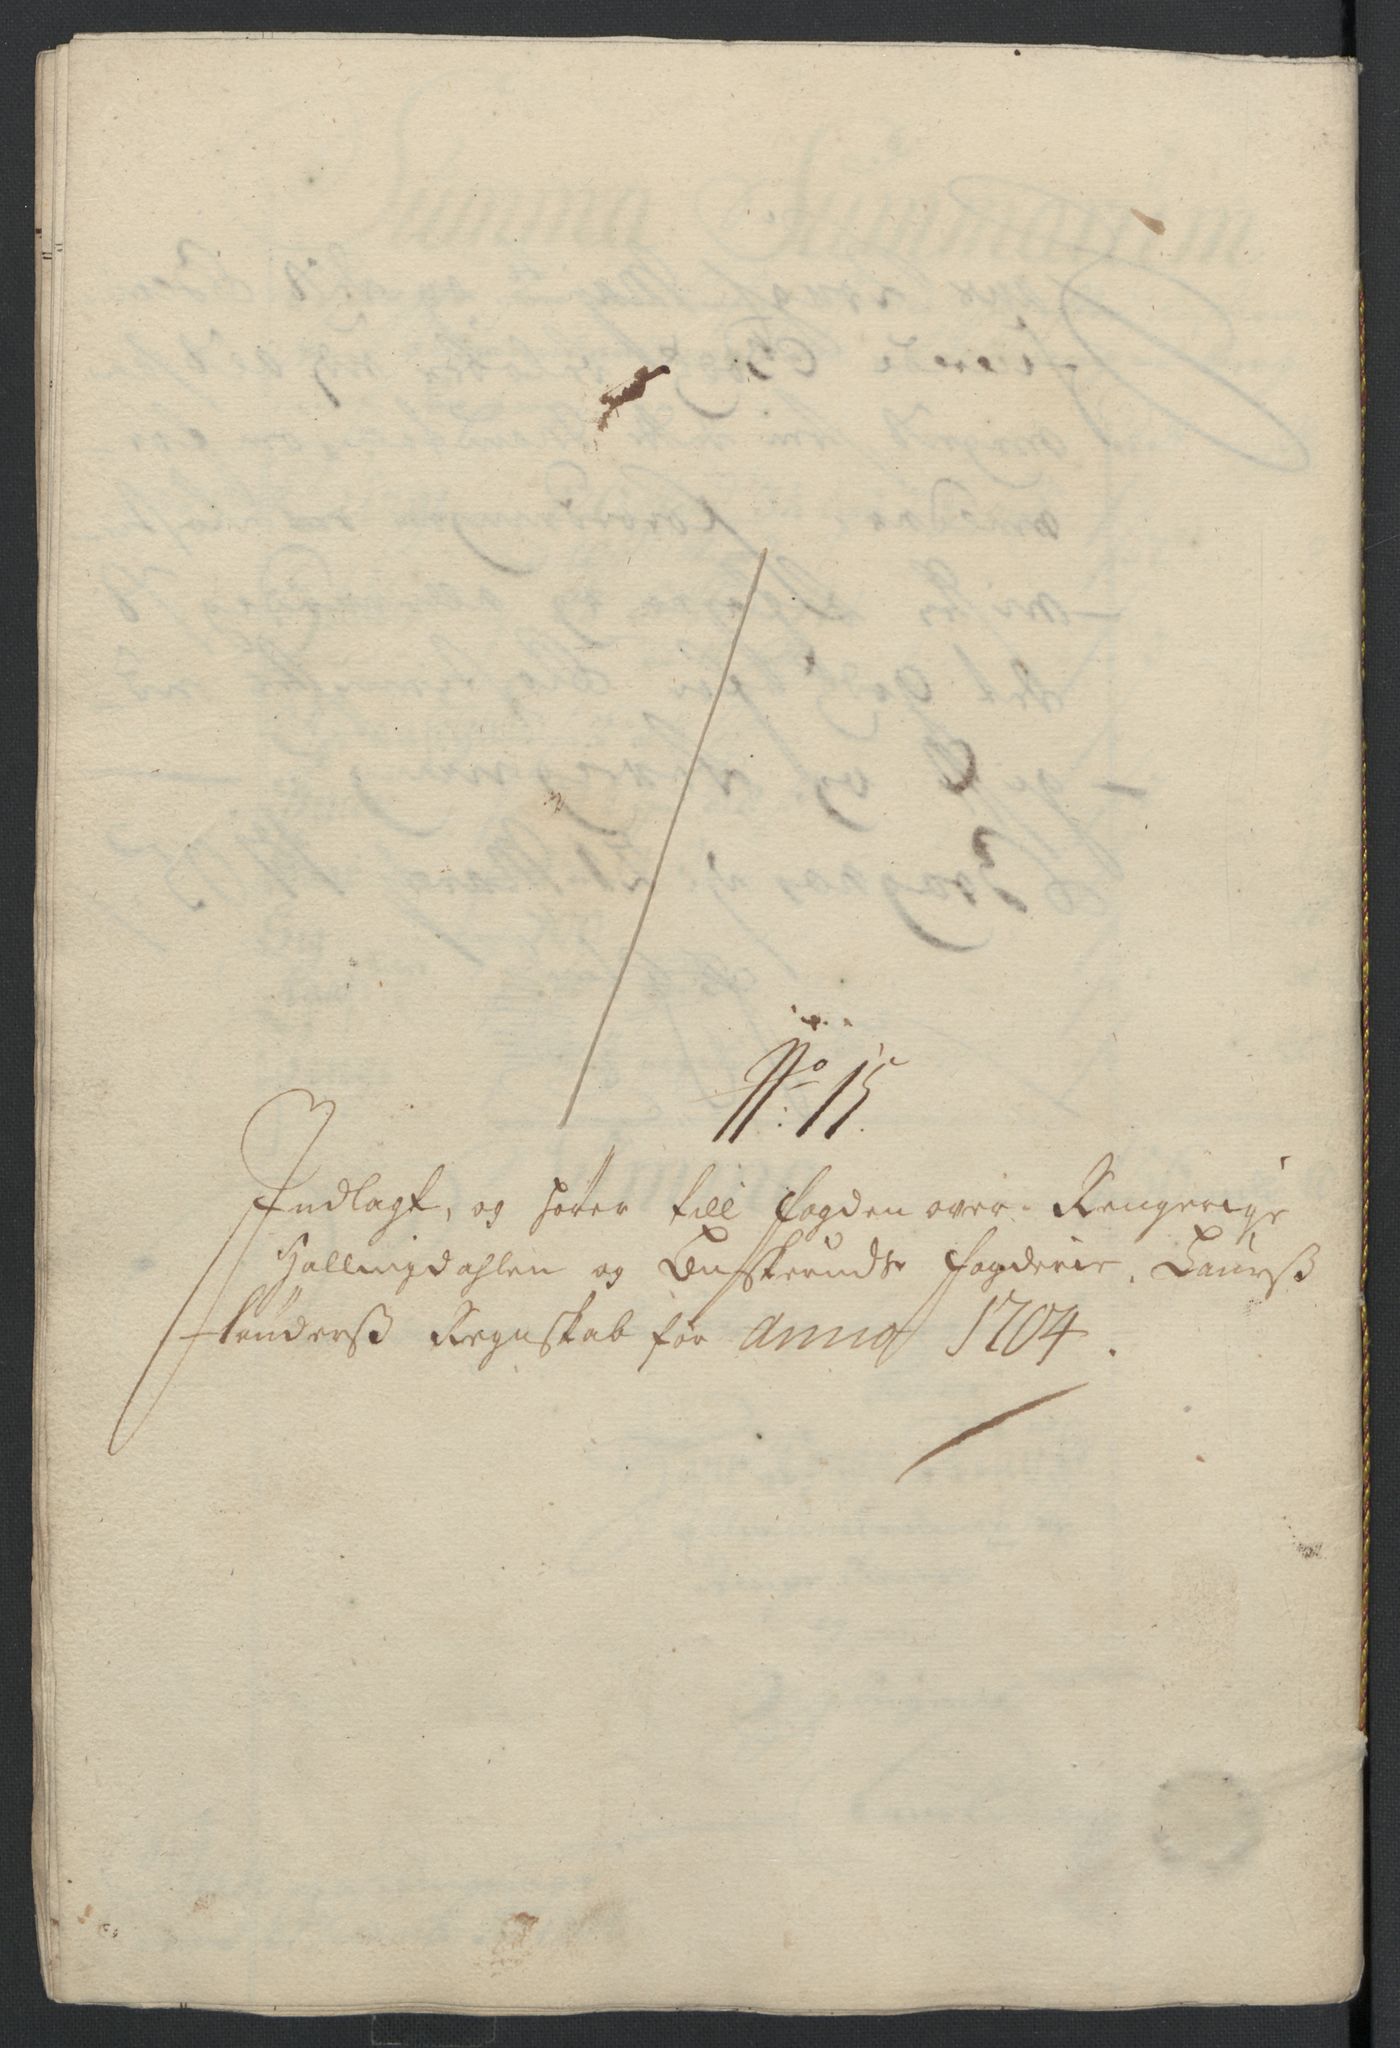 No: 15.
Indlagt, og hører till fogden over Rengerige
Hallingdahlen og Buskeruds fogderie, Laurß
Regnskab for anno 1704.